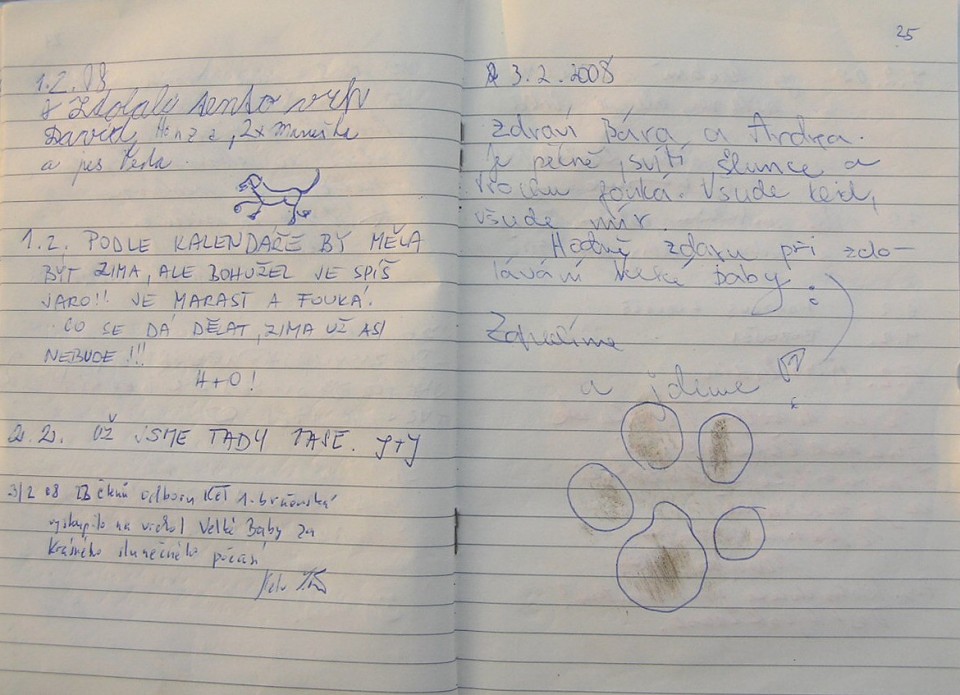 1.2.08
Zdolali tento vrch
David, Honza, 2x Maruška
a pes
1.2. PODLE KALENDAŘE BY MĚLA
BÝT ZIMA, ALE BOHUŽEL JE SPÍŠ
JARO!! JE MARAST A FOUKÁ.
CO SE DÁ DĚLAT, ZIMA UŽ ASI
NEBUDE!!!
H+O!
2.2. UŽ JSME TADY ZASE. J+J
3/2 08 odboru KČT 1. brněnská
vystoupilo na vrchol Velké Baby za
krásného slunečného počasí
25
3.2.2008
Zdraví Bára a Andrea.
Je pěkně, svítí slunce a
trochu fouká. Všude klid,
všude mír.
Hodně zdaru při zdo-
lávání Velké Baby :
Zdravíme
a jdeme